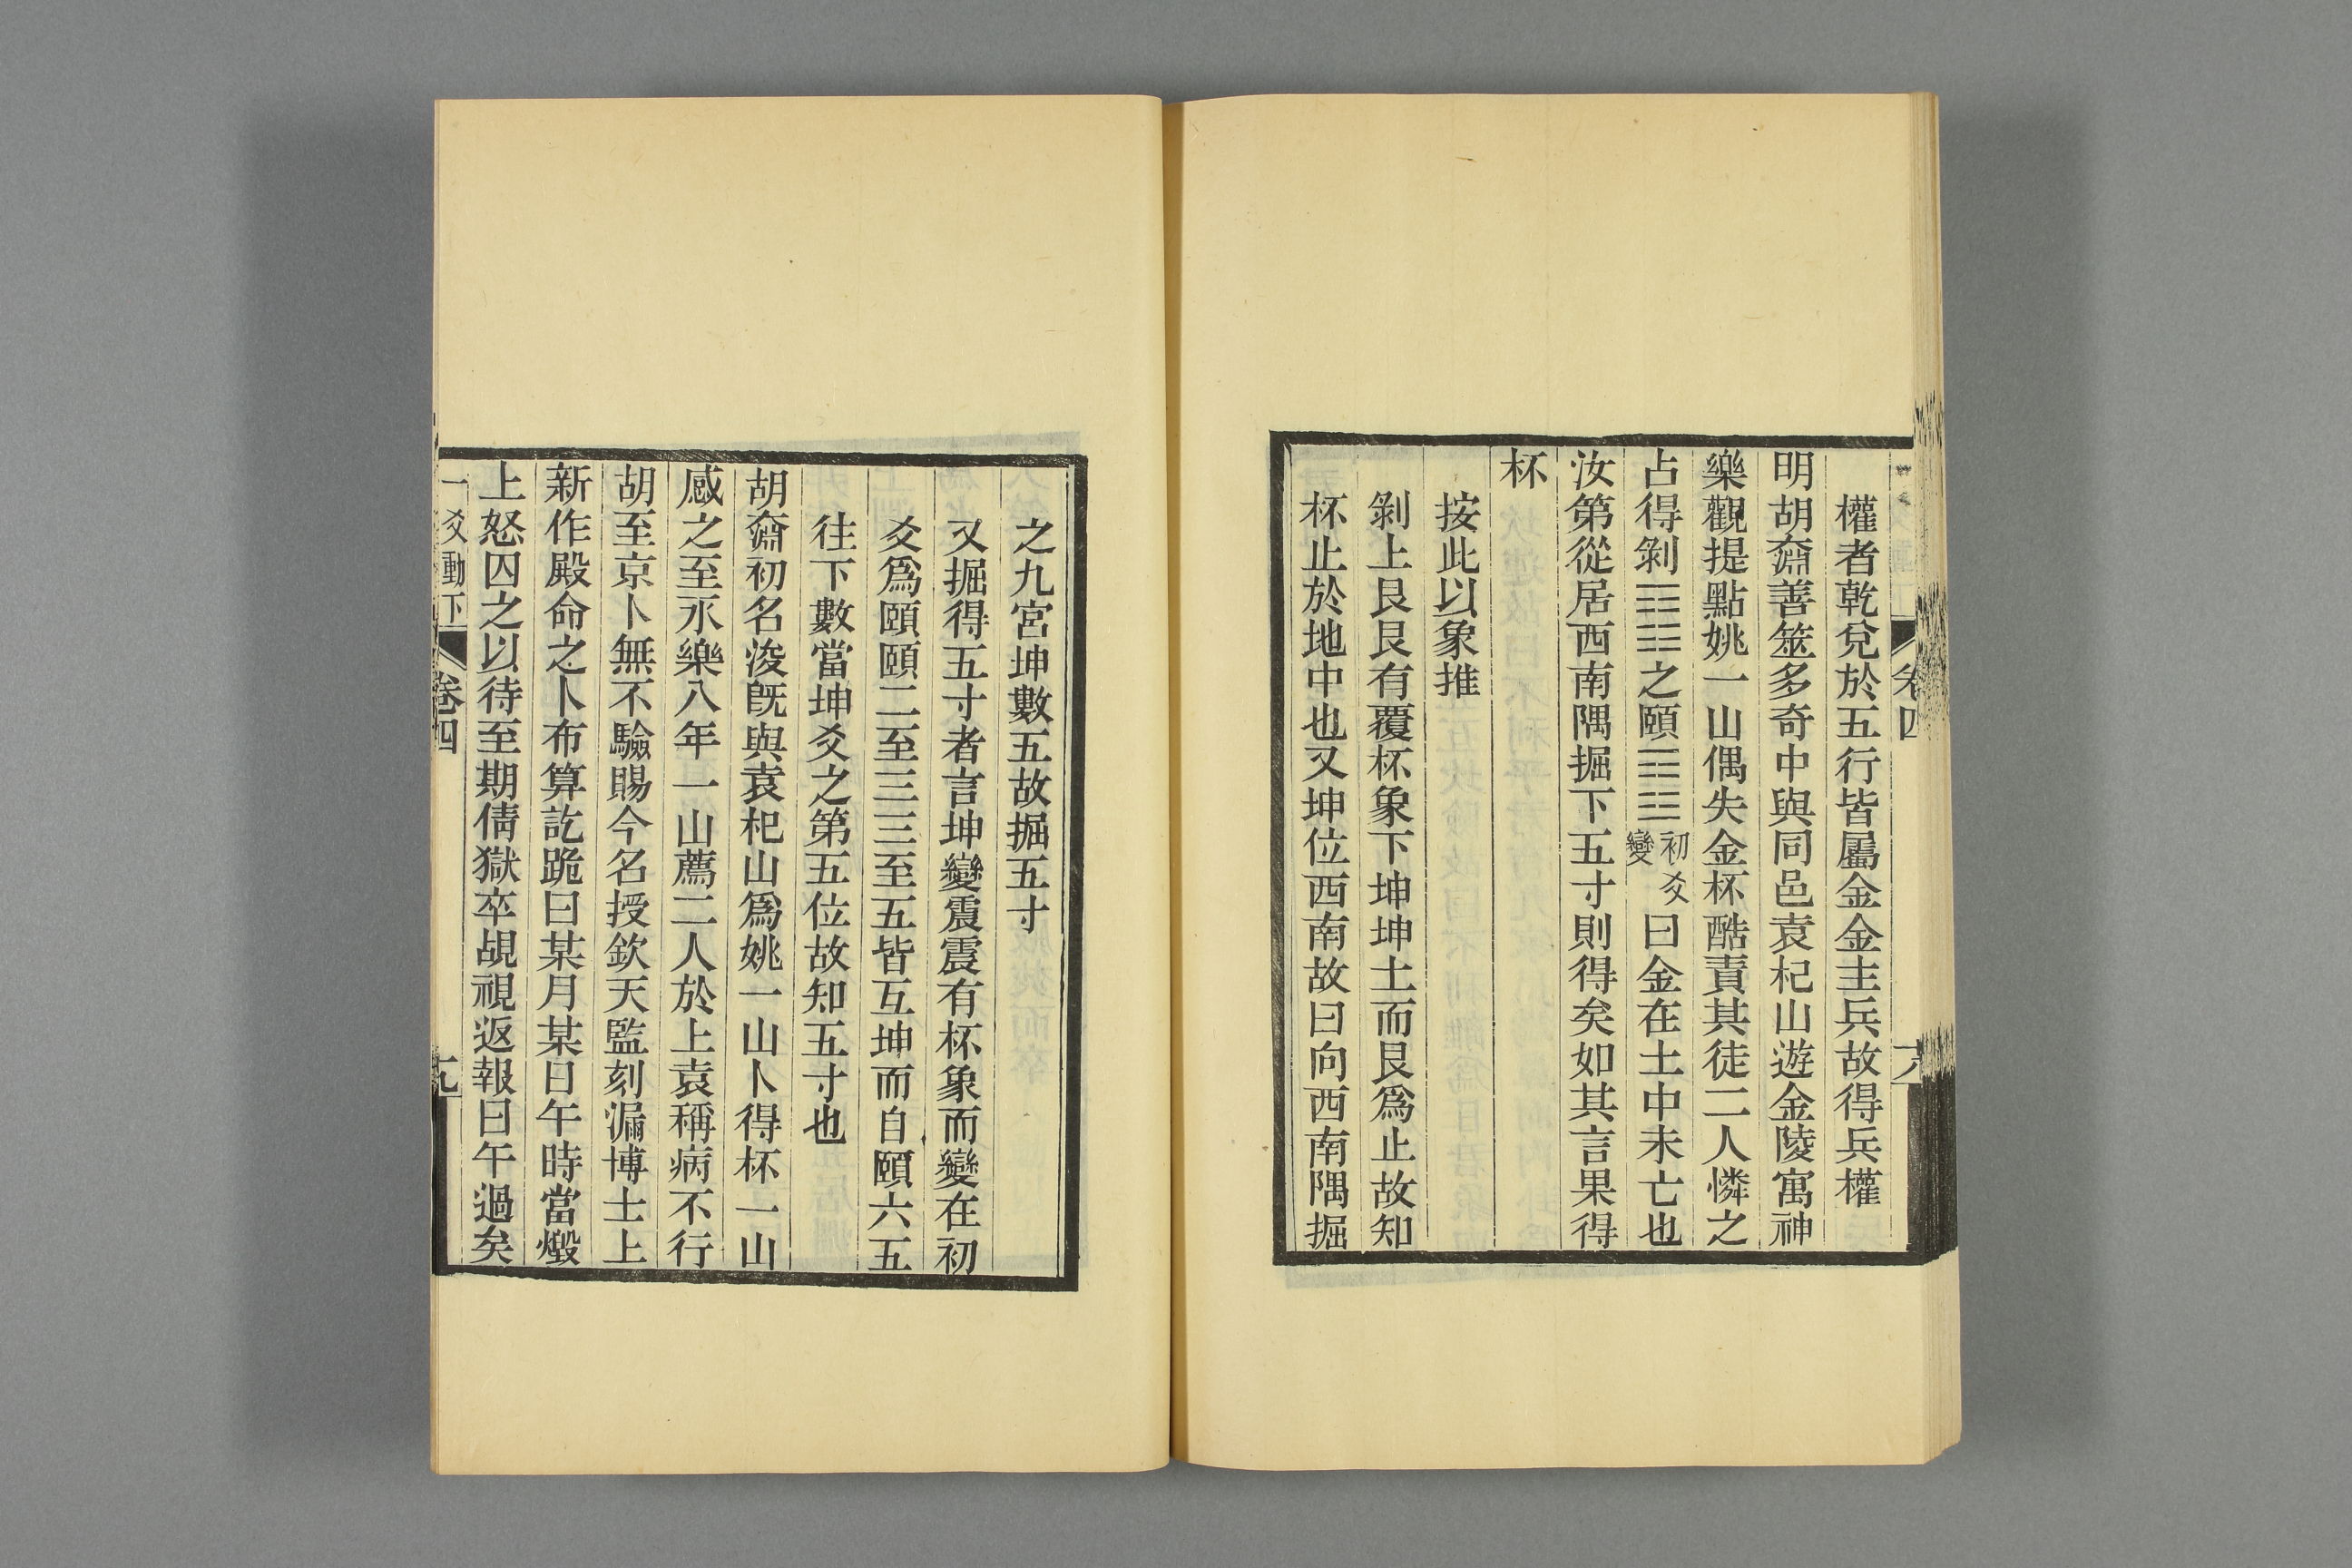 卷四
權者乾兌於五行皆屬金金主兵故得兵權
明胡奫善筮多奇中與同邑袁杞山遊金陵寓神
樂觀提點姚一山偶失金杯酷責其徒二人憐之
占得剝䷖之頤䷚初爻變曰金在土中未亡也
汝第從居西南隅掘下五寸則得矣如其言果得
杯
按此以象推
剝上艮艮有覆杯象下坤坤土而艮爲止故知
杯止於地中也又坤位西南故曰向西南隅掘
之九宮坤數五故掘五寸
又掘得五寸者言坤變震震有杯象而變在初
爻爲頤頤二至三三至五皆互坤而自頤六五
往下數當坤爻之第五位故知五寸也
胡奫初名浚旣與袁杞山爲姚一山卜得杯一山
感之至永樂八年一山薦二人於上袁稱病不行
胡至京卜無不驗賜今名授欽天監刻漏博士上
新作殿命之卜布算訖跪曰某月某日午時當燬
上怒囚之以待至期倩獄卒覘視返報曰午過矣
一爻動下
卷四